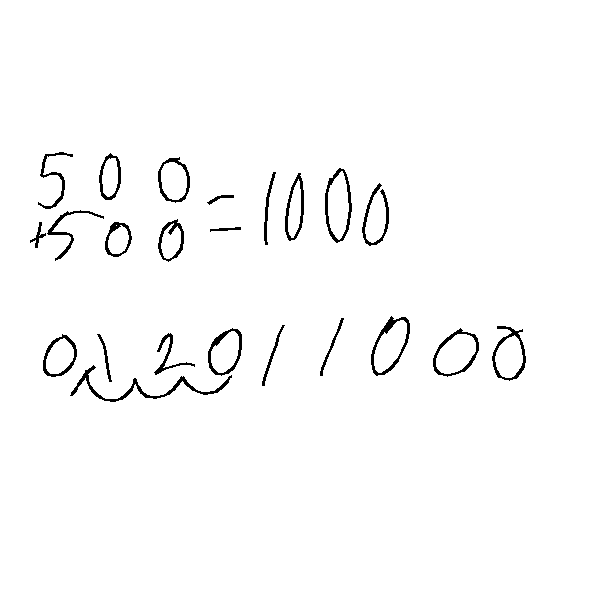 500
+500 = 1000
0120 / 1000